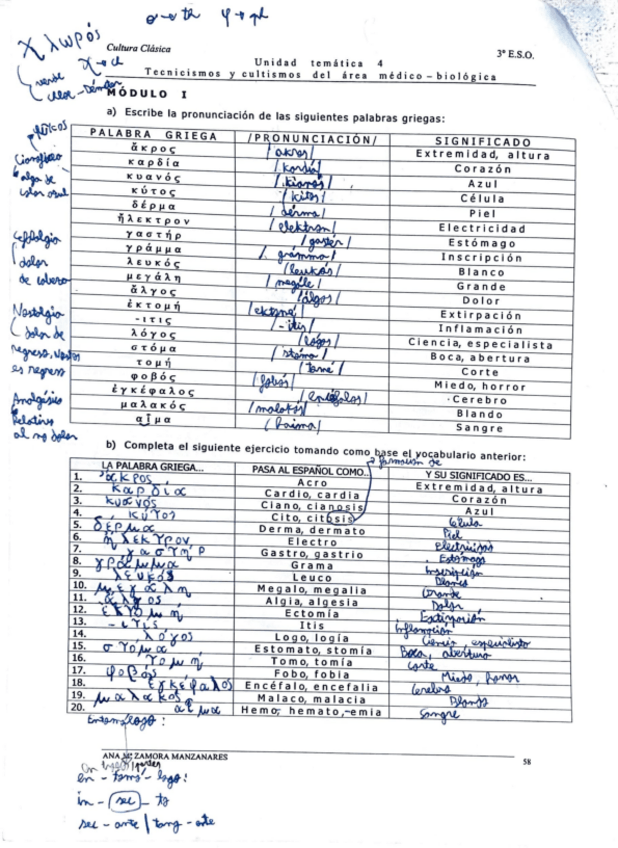 σ → th   φ → ph
χλωρός
Cultura Clásica
3º E.S.O.
χ → ch
Unidad temática 4
Tecnicismos y cultismos del área médico–biológica
verde
MÓDULO I
a) Escribe la pronunciación de las siguientes palabras griegas:
PALABRA GRIEGA /PRONUNCIACIÓN/ SIGNIFICADO
ἄκρος /akros/ Extremidad, altura
καρδία /kardía/ Corazón
κυανός /kianós/ Azul
κύτος /kitos/ Célula
δέρμα /dérma/ Piel
ἤλεκτρον /elektron/ Electricidad
γαστήρ /gastér/ Estómago
γράμμα /grámma/ Inscripción
λευκός /leukós/ Blanco
μεγάλη /megále/ Grande
ἄλγος /álgos/ Dolor
ἐκτομή /ektomé/ Extirpación
-ιτις /-itis/ Inflamación
λόγος /lógos/ Ciencia, especialista
στόμα /stóma/ Boca, abertura
τομή /tomé/ Corte
φοβός /fobós/ Miedo, horror
ἐγκέφαλος /enkéfalos/ Cerebro
μαλακός /malakós/ Blando
αἷμα /haima/ Sangre
Cianofíceo
alga de
color azul
Cefalalgia
dolor
de cabeza
Nostalgia
dolor de
regreso, Nostos
es regreso
Analgésico
Relativo
al no dolor
b) Completa el siguiente ejercicio tomando como base el vocabulario anterior:
formación de
LA PALABRA GRIEGA... PASA AL ESPAÑOL COMO... Y SU SIGNIFICADO ES...
1. ἄκρος Acro Extremidad, altura
2. καρδία Cardio, cardia Corazón
3. κυανός Ciano, cianosis Azul
4. κύτος Cito, citosis Célula
5. δέρμα Derma, dermato Piel
6. ἤλεκτρον Electro Electricidad
7. γαστήρ Gastro, gastrio Estómago
8. γράμμα Grama Inscripción
9. λευκός Leuco Blanco
10. μεγάλη Megalo, megalia Grande
11. ἄλγος Algia, algesia Dolor
12. ἐκτομή Ectomía Extirpación
13. -ιτις Itis Inflamación
14. λόγος Logo, logía Ciencia, especialista
15. στόμα Estomato, stomía Boca, abertura
16. τομή Tomo, tomía Corte
17. φοβος Fobo, fobia Miedo, horror
18. ἐγκέφαλος Encéfalo, encefalia Cerebro
19. μαλακός Malaco, malacia Blando
20. αἷμα Hemo, hemato,-emia Sangre
Entomólogo :
ANA Mª ZAMORA MANZANARES
58
en - tomó - logo:
in - sec - to
sec - ante | tang - ente